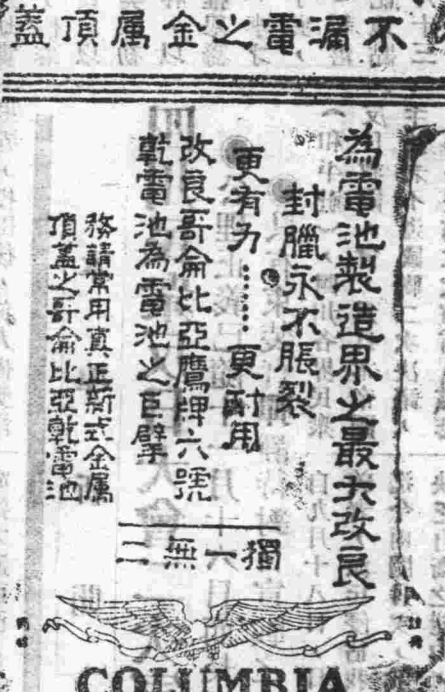 不漏電之金属頂蓋
為電池製造界之最大改良
封臘永不脹裂
更有力……更耐用
改良哥侖比亞鷹牌六號
乾電池為電池之巨擘
務請常用真正新式金属
頂蓋之哥侖比亞乾電池
獨一無二
COLUMBIA